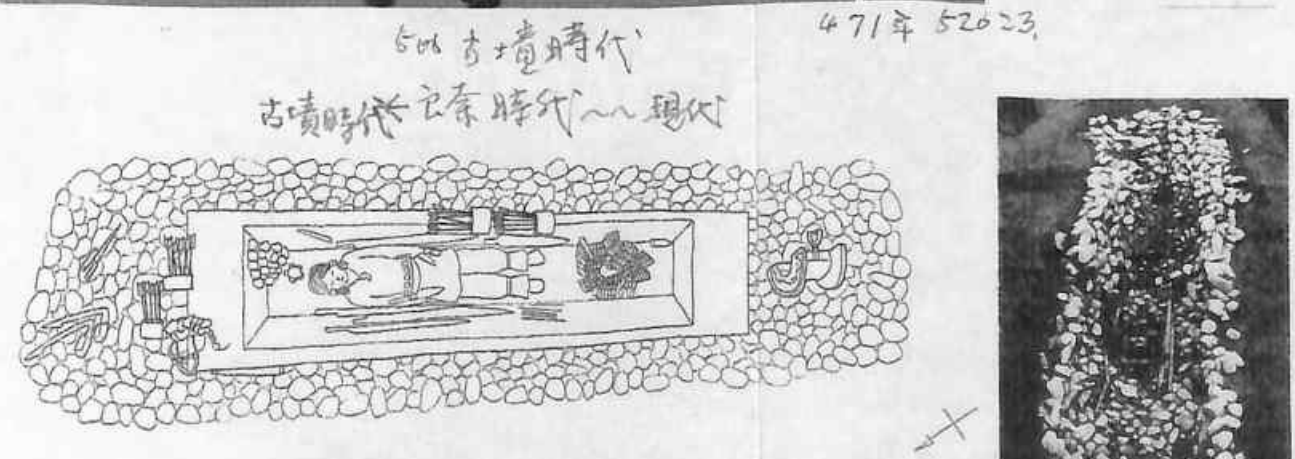 471年 52023.
500 古墳時代
古墳時代← 奈 時代～～現代